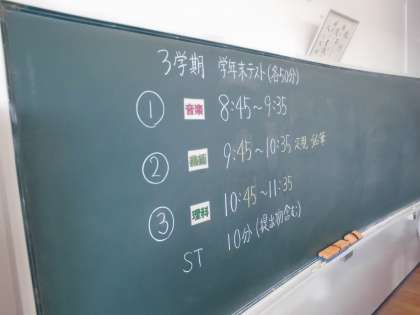 3学期 学年末テスト(各50分)
① 音楽 8:45～9:35
② 美術 9:45～10:35 定規 鉛筆
③ 理科 10:45～11:35
ST 10分(提出物含む)